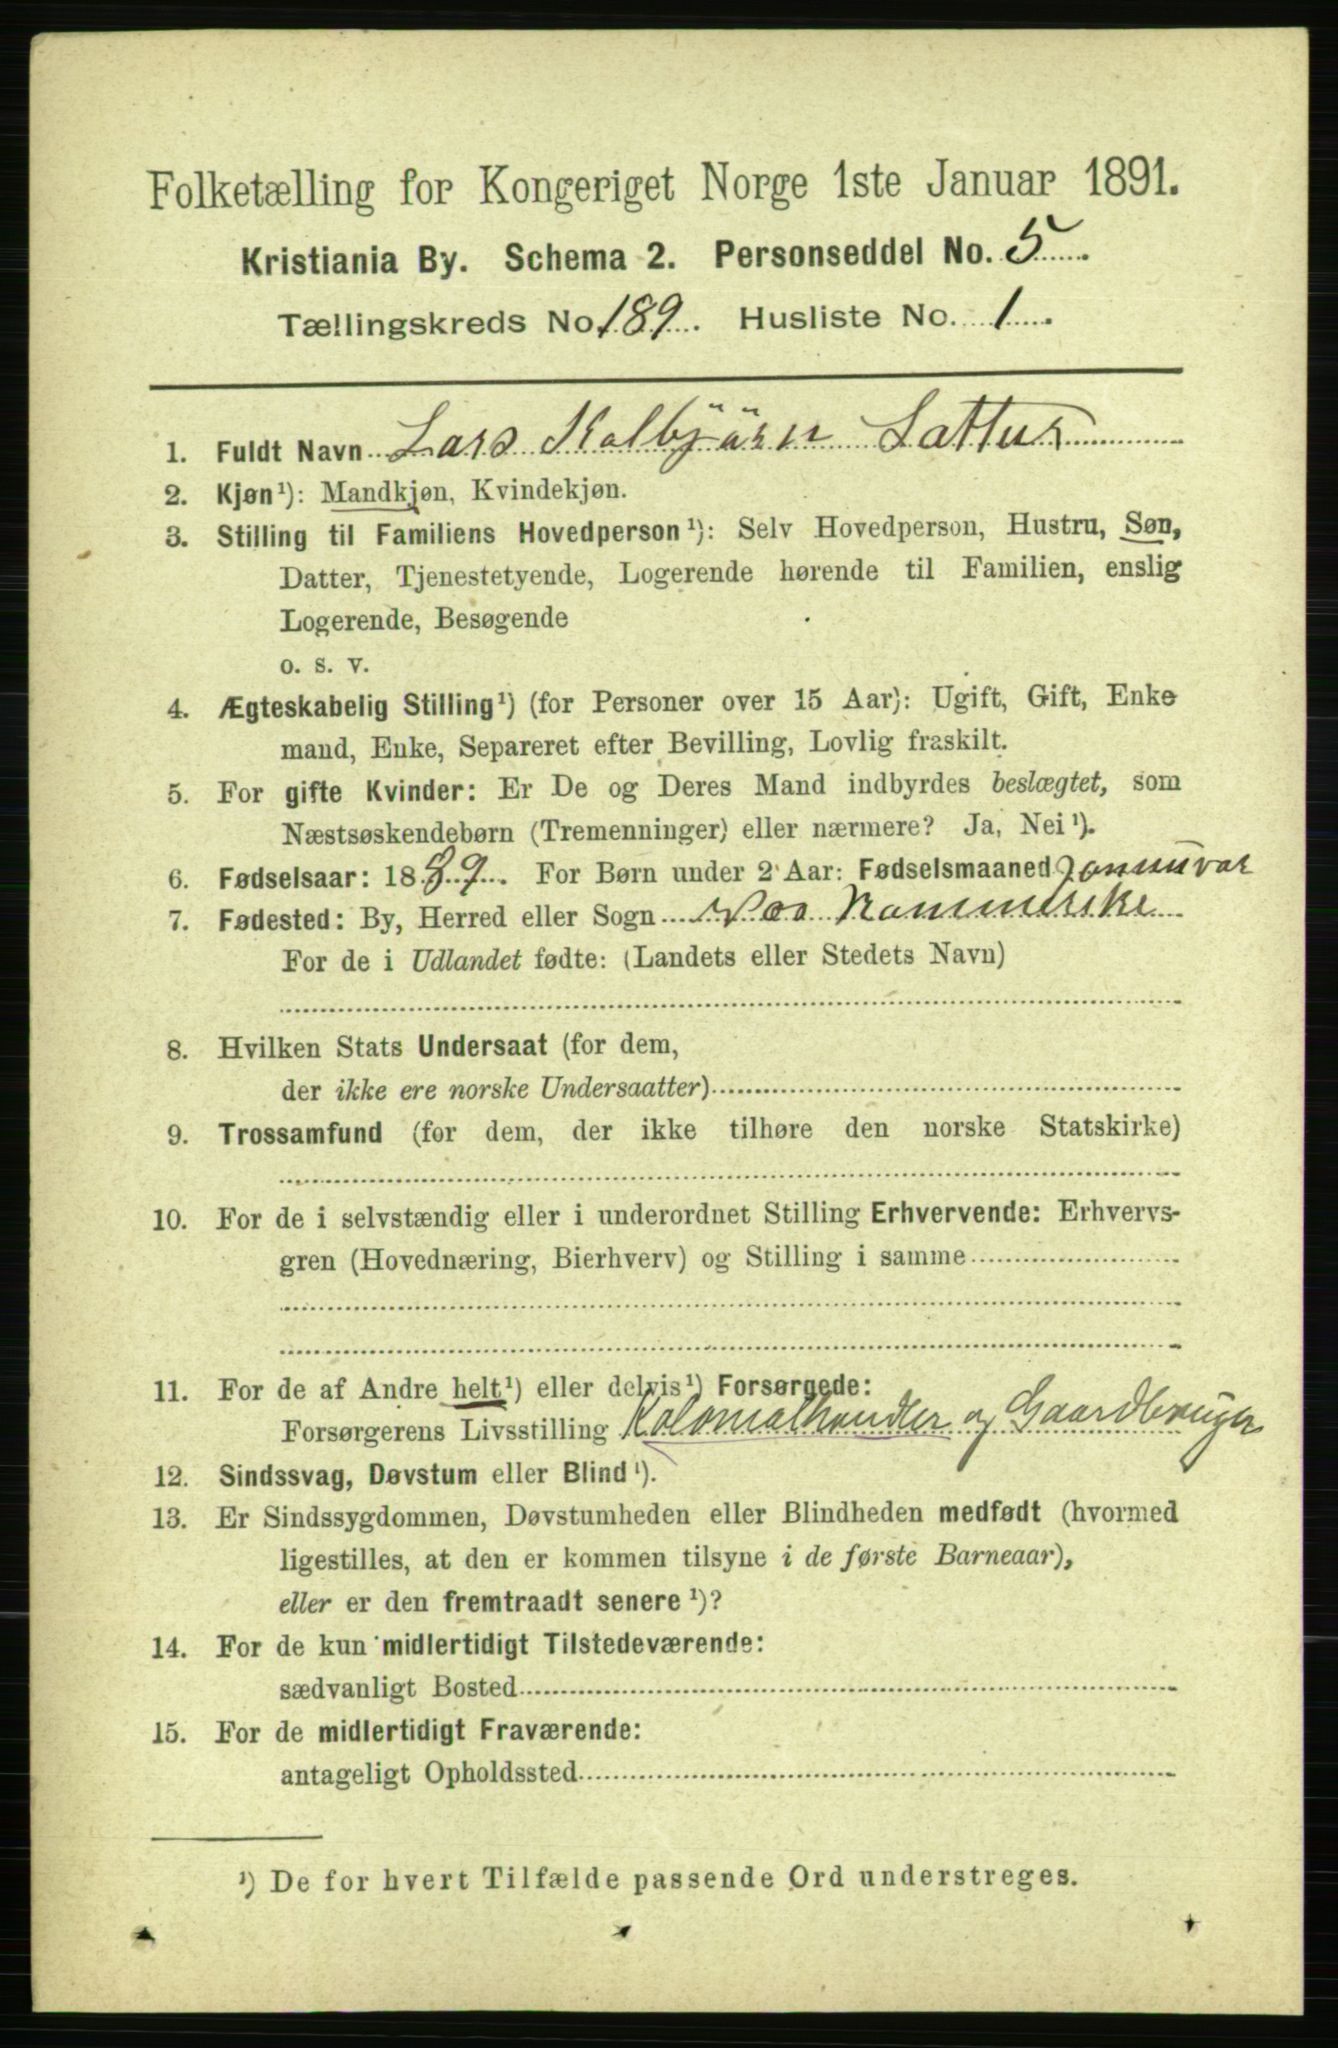 Folketælling for Kongeriget Norge 1ste Januar 1891.
Kristiania By. Schema 2. Personseddel No. 5
Tællingskreds No. 189. Husliste No. 1
1. Fuldt Navn Lars Kolbjörn Sattur
2. Kjøn¹): Mandkjøn, Kvindekjøn.
3. Stilling til Familiens Hovedperson¹): Selv Hovedperson, Hustru, Søn,
Datter, Tjenestetyende, Logerende hørende til Familien, enslig
Logerende, Besøgende
o. s. v.
4. Ægteskabelig Stilling¹) (for Personer over 15 Aar): Ugift, Gift, Enke
mand, Enke, Separeret efter Bevilling, Lovlig fraskilt.
5. For gifte Kvinder: Er De og Deres Mand indbyrdes beslægtet, som
Næstsøskendebørn (Tremenninger) eller nærmere? Ja, Nei¹).
6. Fødselsaar: 1889. For Børn under 2 Aar: Fødselsmaaned Januuar
7. Fødested: By, Herred eller Sogn Næs Rommerike
For de i Udlandet fødte: (Landets eller Stedets Navn)
8. Hvilken Stats Undersaat (for dem,
der ikke ere norske Undersaatter)
9. Trossamfund (for dem, der ikke tilhøre den norske Statskirke)
10. For de i selvstændig eller i underordnet Stilling Erhvervende: Erhvervs-
gren (Hovednæring, Bierhverv) og Stilling i samme
11. For de af Andre helt¹) eller delvis¹) Forsørgede:
Forsørgerens Livsstilling Kolonialhandler og Gaardbruger
12. Sindssvag, Døvstum eller Blind¹).
13. Er Sindssygdommen, Døvstumheden eller Blindheden medfødt (hvormed
ligestilles, at den er kommen tilsyne i de første Barneaar),
eller er den fremtraadt senere¹)?
14. For de kun midlertidigt Tilstedeværende:
sædvanligt Bosted
15. For de midlertidigt Fraværende:
antageligt Opholdssted
¹) De for hvert Tilfælde passende Ord understreges.